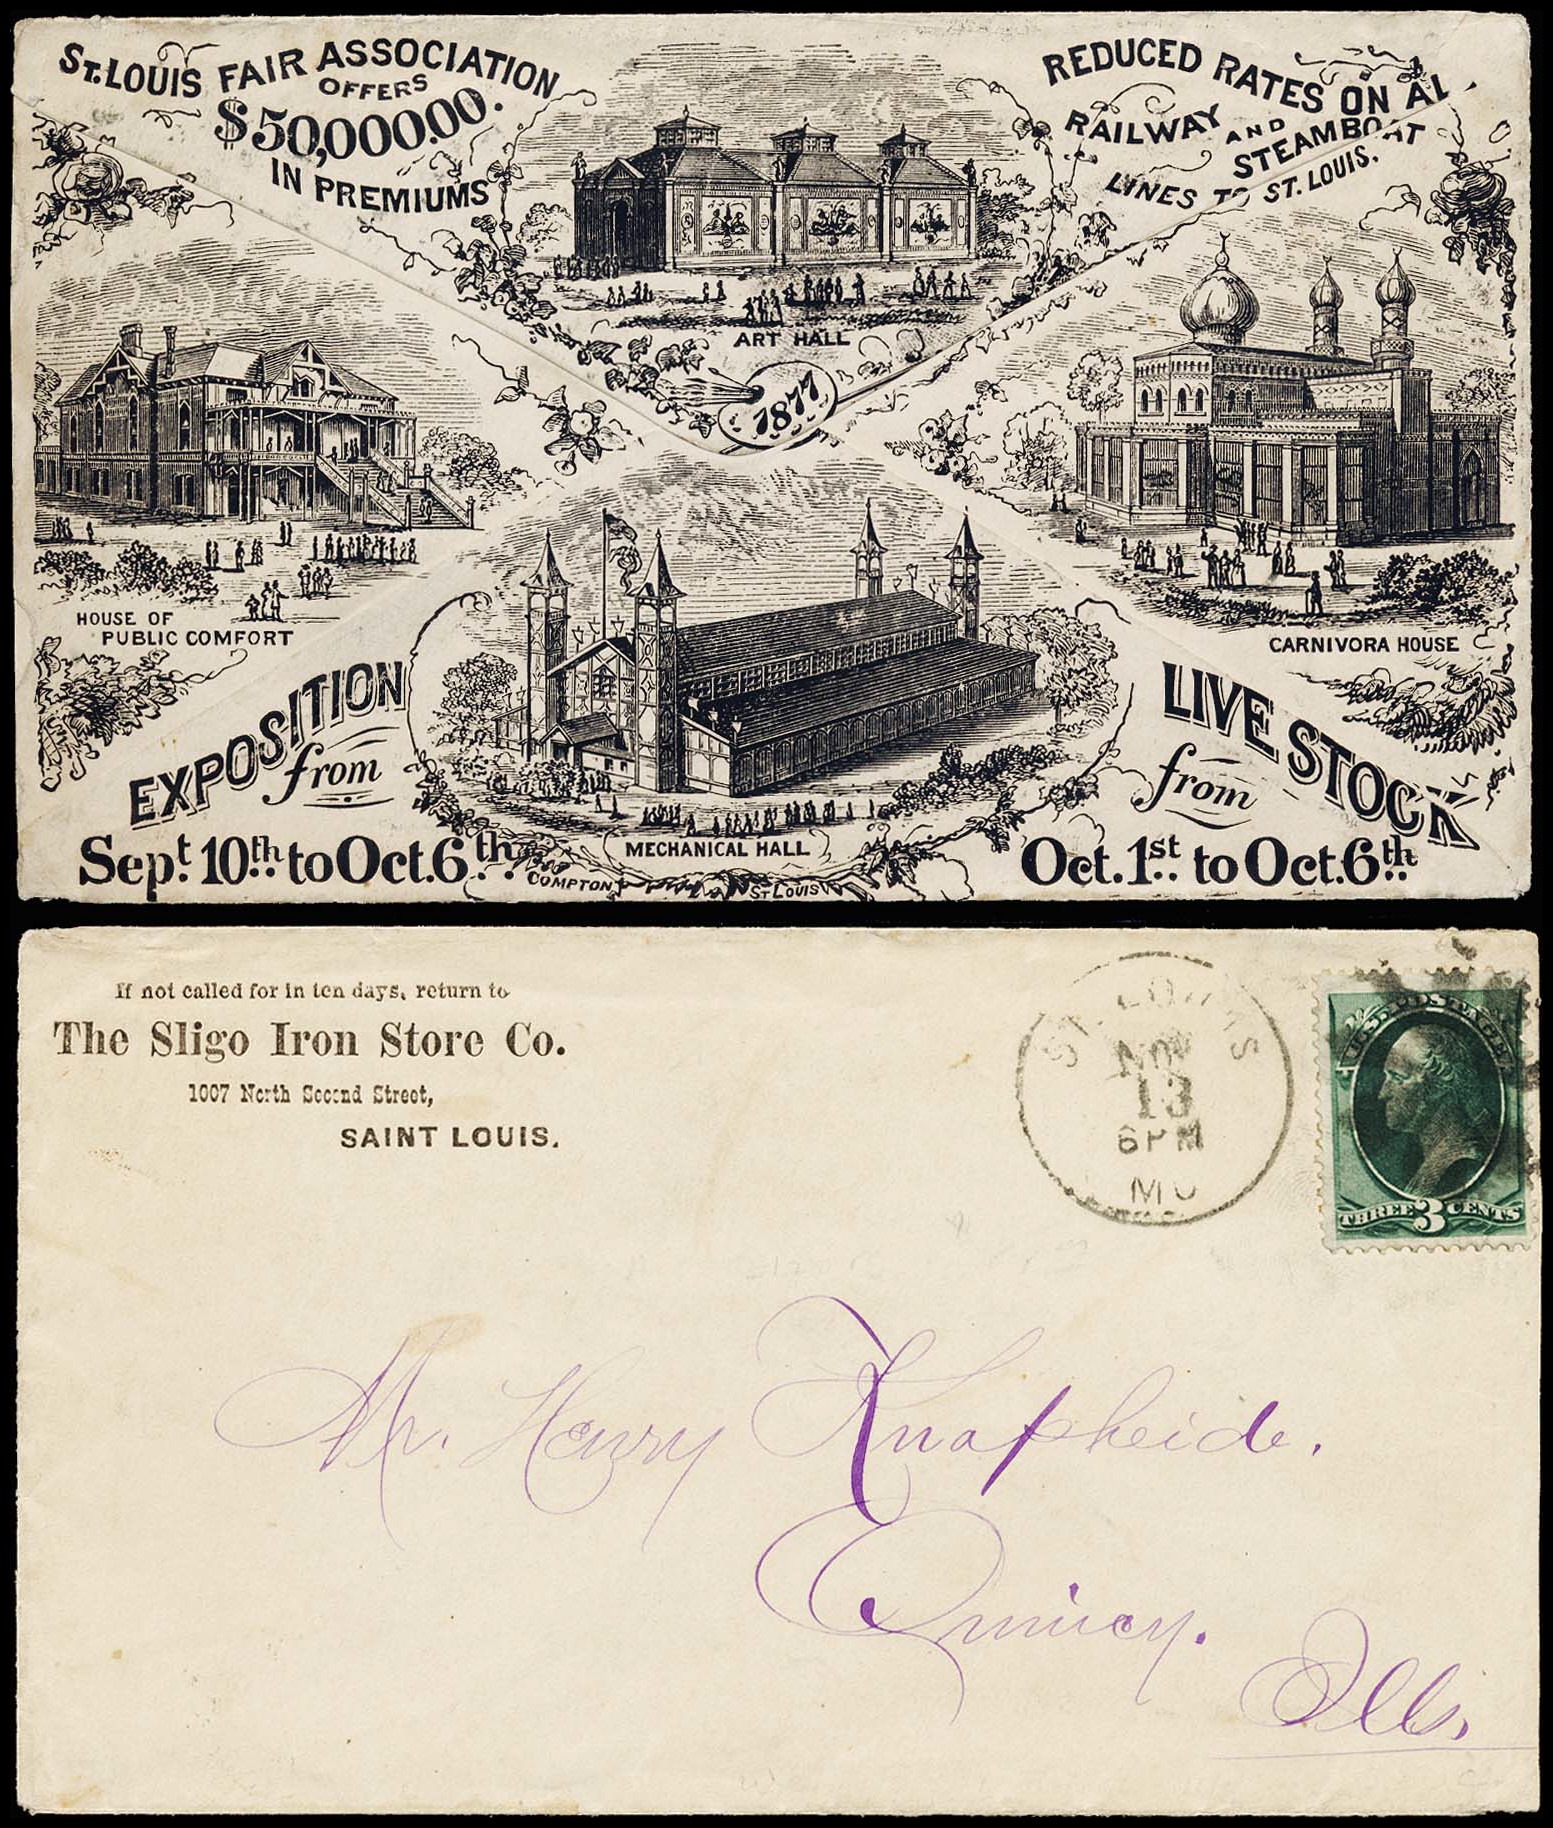 St. LOUIS FAIR ASSOCIATION
OFFERS
$50,000.00.
IN PREMIUMS
REDUCED RATES ON AL
RAILWAY AND STEAMBOAT
LINES TO ST. LOUIS.
ART HALL
1877
HOUSE OF
PUBLIC COMFORT
CARNIVORA HOUSE
EXPOSITION
from
Sept. 10th. to Oct. 6th.
MECHANICAL HALL
COMPTON ST LOUIS
LIVE STOCK
from
Oct. 1st. to Oct. 6th.
If not called for in ten days, return to
The Sligo Iron Store Co.
1007 North Second Street,
SAINT LOUIS.
ST. LOUIS
NOV
13
6 PM
MO
U.S. POSTAGE
THREE 3 CENTS
Mr. Henry Knapheide.
Quincy.
Ills.